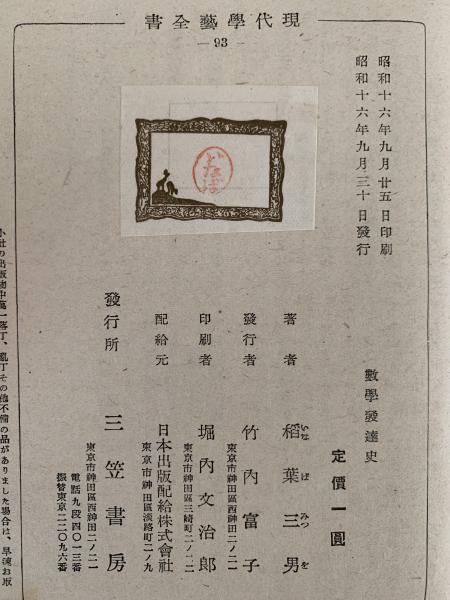 書全藝學代現
— 93 —
昭和十六年九月廿五日印刷
昭和十六年九月三十日發行
いなば
數學發達史
定價一圓
著者
稻葉三男
いなばみつを
發行者
竹內富子
東京市神田區西神田二ノ二一
印刷者
堀內文治郎
東京市神田區三崎町二ノ二二
配給元
日本出版配給株式會社
東京市神田區淡路町二ノ九
發行所
三笠書房
東京市神田區西神田二ノ二一
電話九段四〇一三番
振替東京二二〇九六番
小社の出版物中萬一落丁、亂丁その他不備の品がありました場合は、早速お取